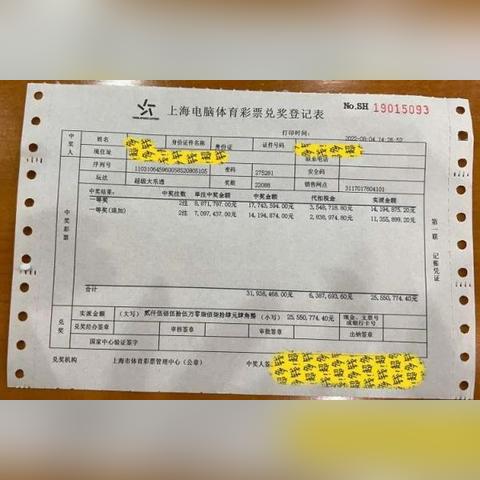 上海电脑体育彩票兑奖登记表
No.SH 19015093
打印时间: 2022-08-04 14:26:52
中奖人 姓名 身份证件名称 身份证 证件号码
现住址 联系电话
序列号 110310645960058520805105 密码 275291 安全码
玩法 超级大乐透 奖期 22088 销售网点 3117017604101
中奖彩票
中奖结果: 中奖注数 单注中奖金额 中奖金额 代扣税金 实派金额
一等奖 2注 8,871,797.00元 17,743,594.00元 3,548,718.80元 14,194,875.20元
一等奖(追加) 2注 7,097,437.00元 14,194,874.00元 2,838,974.80元 11,355,899.20元
合计 31,938,468.00元 6,387,693.60元 25,550,774.40元
第一联 记帐凭证
兑奖
实派金额 (大写) 贰仟伍佰伍拾伍万零柒佰柒拾肆元肆角整 (小写) 25,550,774.40元 现金、支票号或银行卡号
兑奖经办签章 审核签章 审批签章 出纳签章
国家中心验证签字
兑奖机构 上海市体育彩票管理中心(公章) 中奖人签